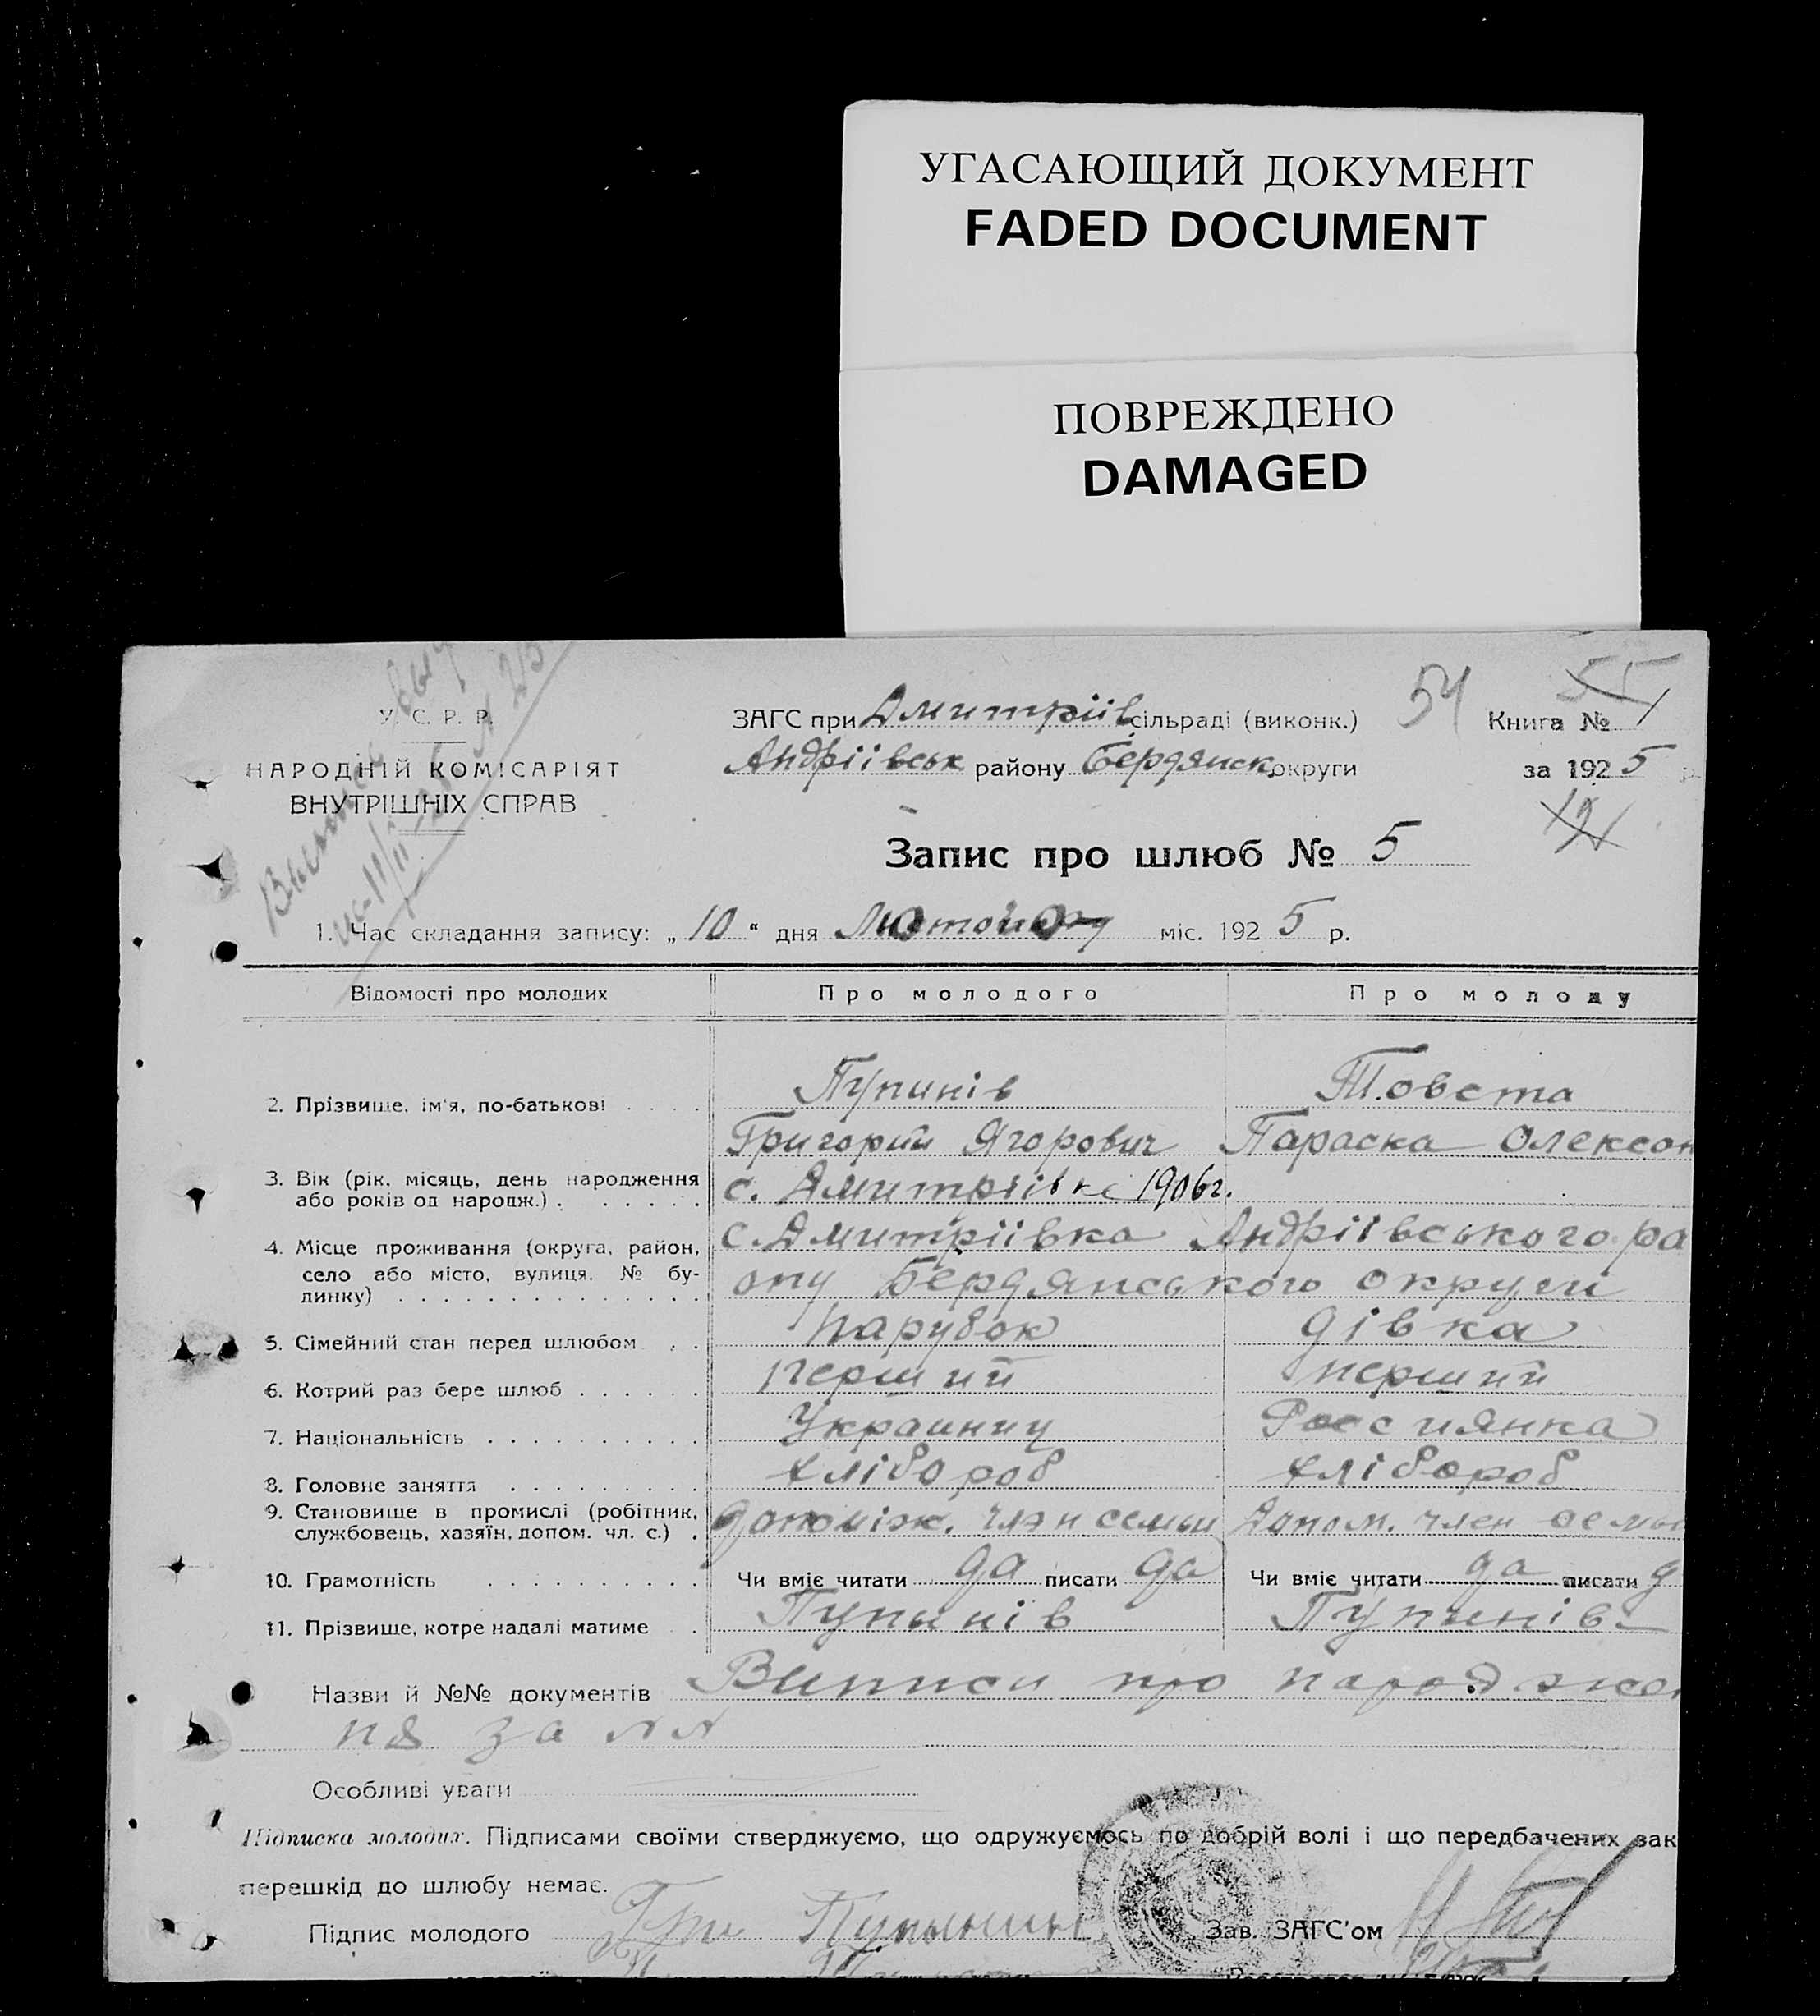 УГАСАЮЩИЙ ДОКУМЕНТ
FADED DOCUMENT
ПОВРЕЖДЕНО
DAMAGED
54 55
У. С. Р. Р. ЗАГС при Дмитріїв сільраді (виконк.) Книга № 1
НАРОДНІЙ КОМІСАРІЯТ Андріївськ району Бердянск округи за 1925 р.
ВНУТРІШНІХ СПРАВ
Запис про шлюб № 5
1. Час складання запису: „10" дня міс. 1925 р.
Відомості про молодих Про молодого Про молоду
2. Прізвище, ім'я, по-батькові . . . . Пупинів Товста
Григорий Ягорович Параска Олексон
3. Вік (рік, місяць, день народження
або років од народж.) . . . . . . с. Дмитріївке 1906г.
4. Місце проживання (округа, район, с. Дмитріївка Андріївського ра
село або місто, вулиця, № бу-
динку) . . . . . . . . . . . . . . ону Бердянського округи
5. Сімейний стан перед шлюбом . . парубок дівка
6. Котрий раз бере шлюб . . . . . . перший перший
7. Національність . . . . . . . . . . Украинец Россиянка
8. Головне заняття . . . . . . . . . хлібороб хлібороб
9. Становище в промислі (робітник,
службовець, хазяїн, допом. чл. с.) . допоміж. член семьи Допом. член семьи
10. Грамотність . . . . . . . . . . Чи вміє читати да писати да Чи вміє читати да писати д
11. Прізвище, котре надалі матиме . Пупынів Пупинів
Назви й №№ документів Виписи про народжен
ня за №№
Особливі уваги
Підписка молодих. Підписами своїми стверджуємо, що одружуємось по добрій волі і що передбачених зак
перешкід до шлюбу немає.
Підпис молодого Гри Пупынин Зав. ЗАГС'ом